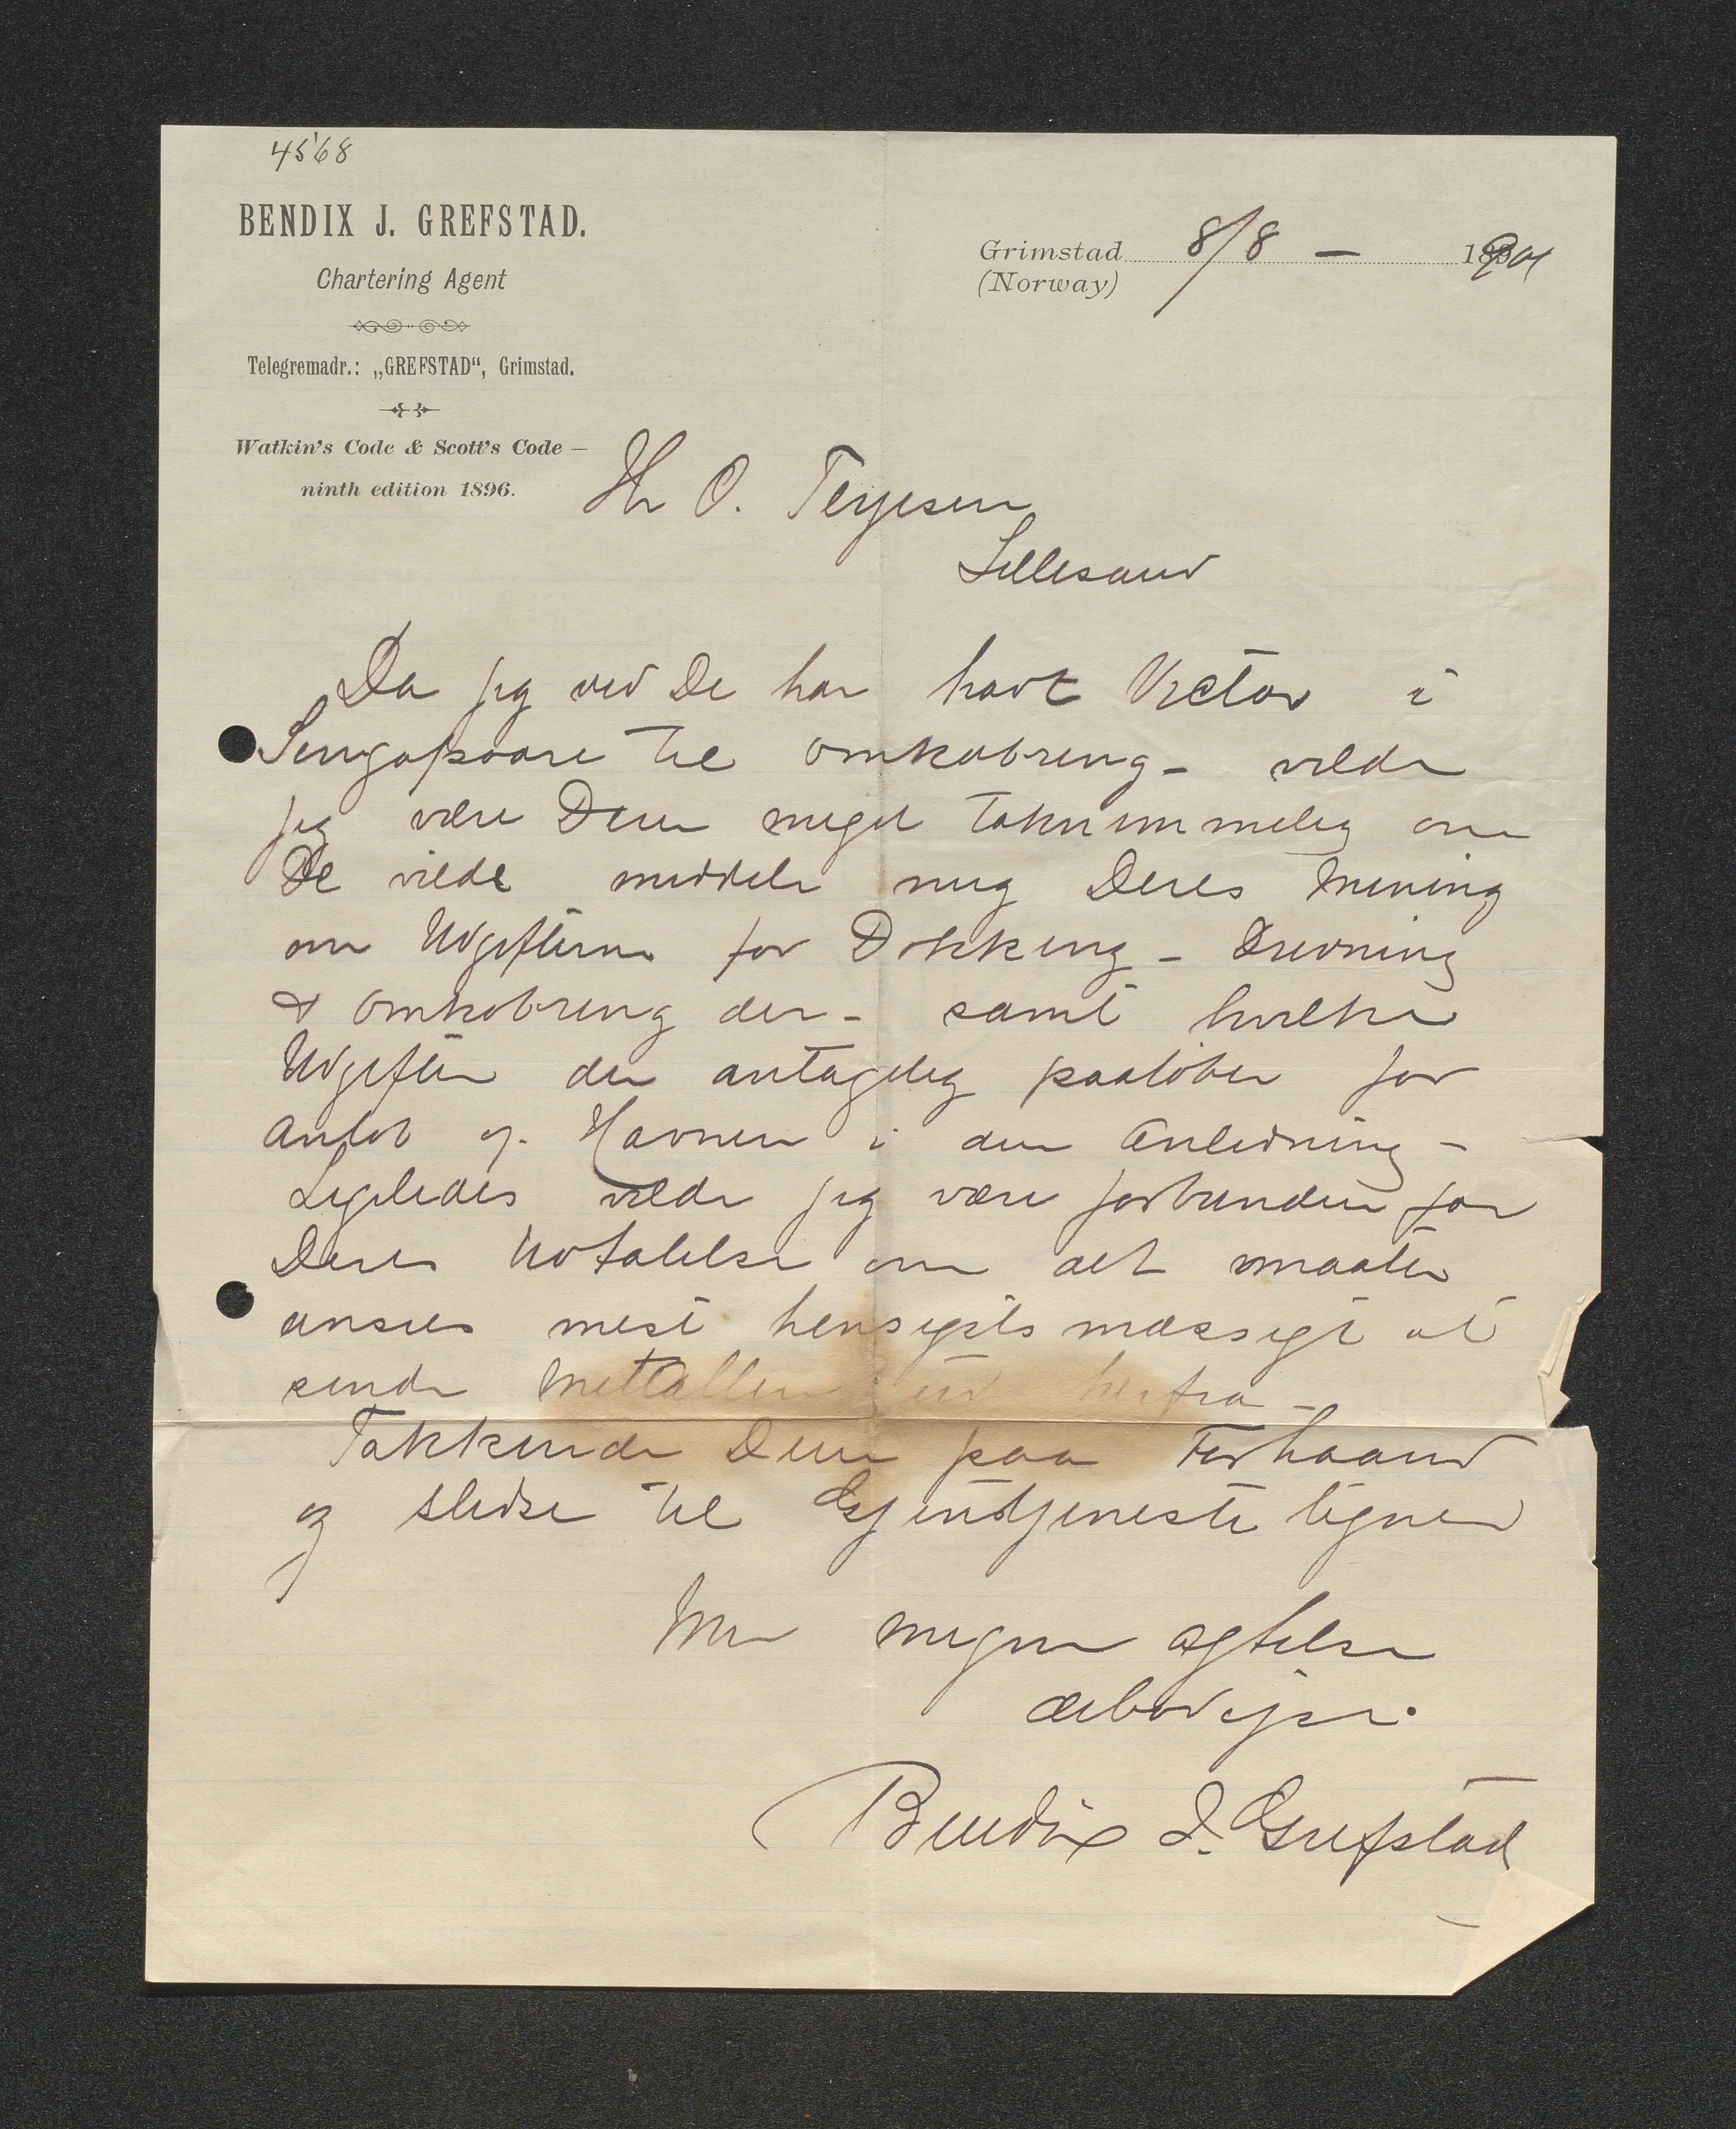 4568
BENDIX J. GREFSTAD.
Chartering Agent
Telegremadr.: „GREFSTAD“, Grimstad.
Watkin's Code & Scott's Code —
ninth edition 1896.
Grimstad 8/8 — 1901
(Norway)
Hr O. Terjesen
Lillesand
Da jeg ved De har havt Victor i
Singapoore til omkobring – vilde
jeg være Dem meget taknemmelig om
De vilde meddele mig Deres Mening
om Udgifterne for Dokking –
& omkobring der – samt hvilke
Udgifter der antagelig paaløber for
Anløb af Havnen i den Anledning –
Ligeledes vilde jeg være forbunden for
Deres Udtalelse om det maatte
ansees mest hensigtsmæssigt at
sende Mettallen ud herfra –
Takkende Dem paa Forhaand
og stedse til Gjentjeneste tegner
Med megen agtelse
ærbødigst
Bendix J. Grefstad